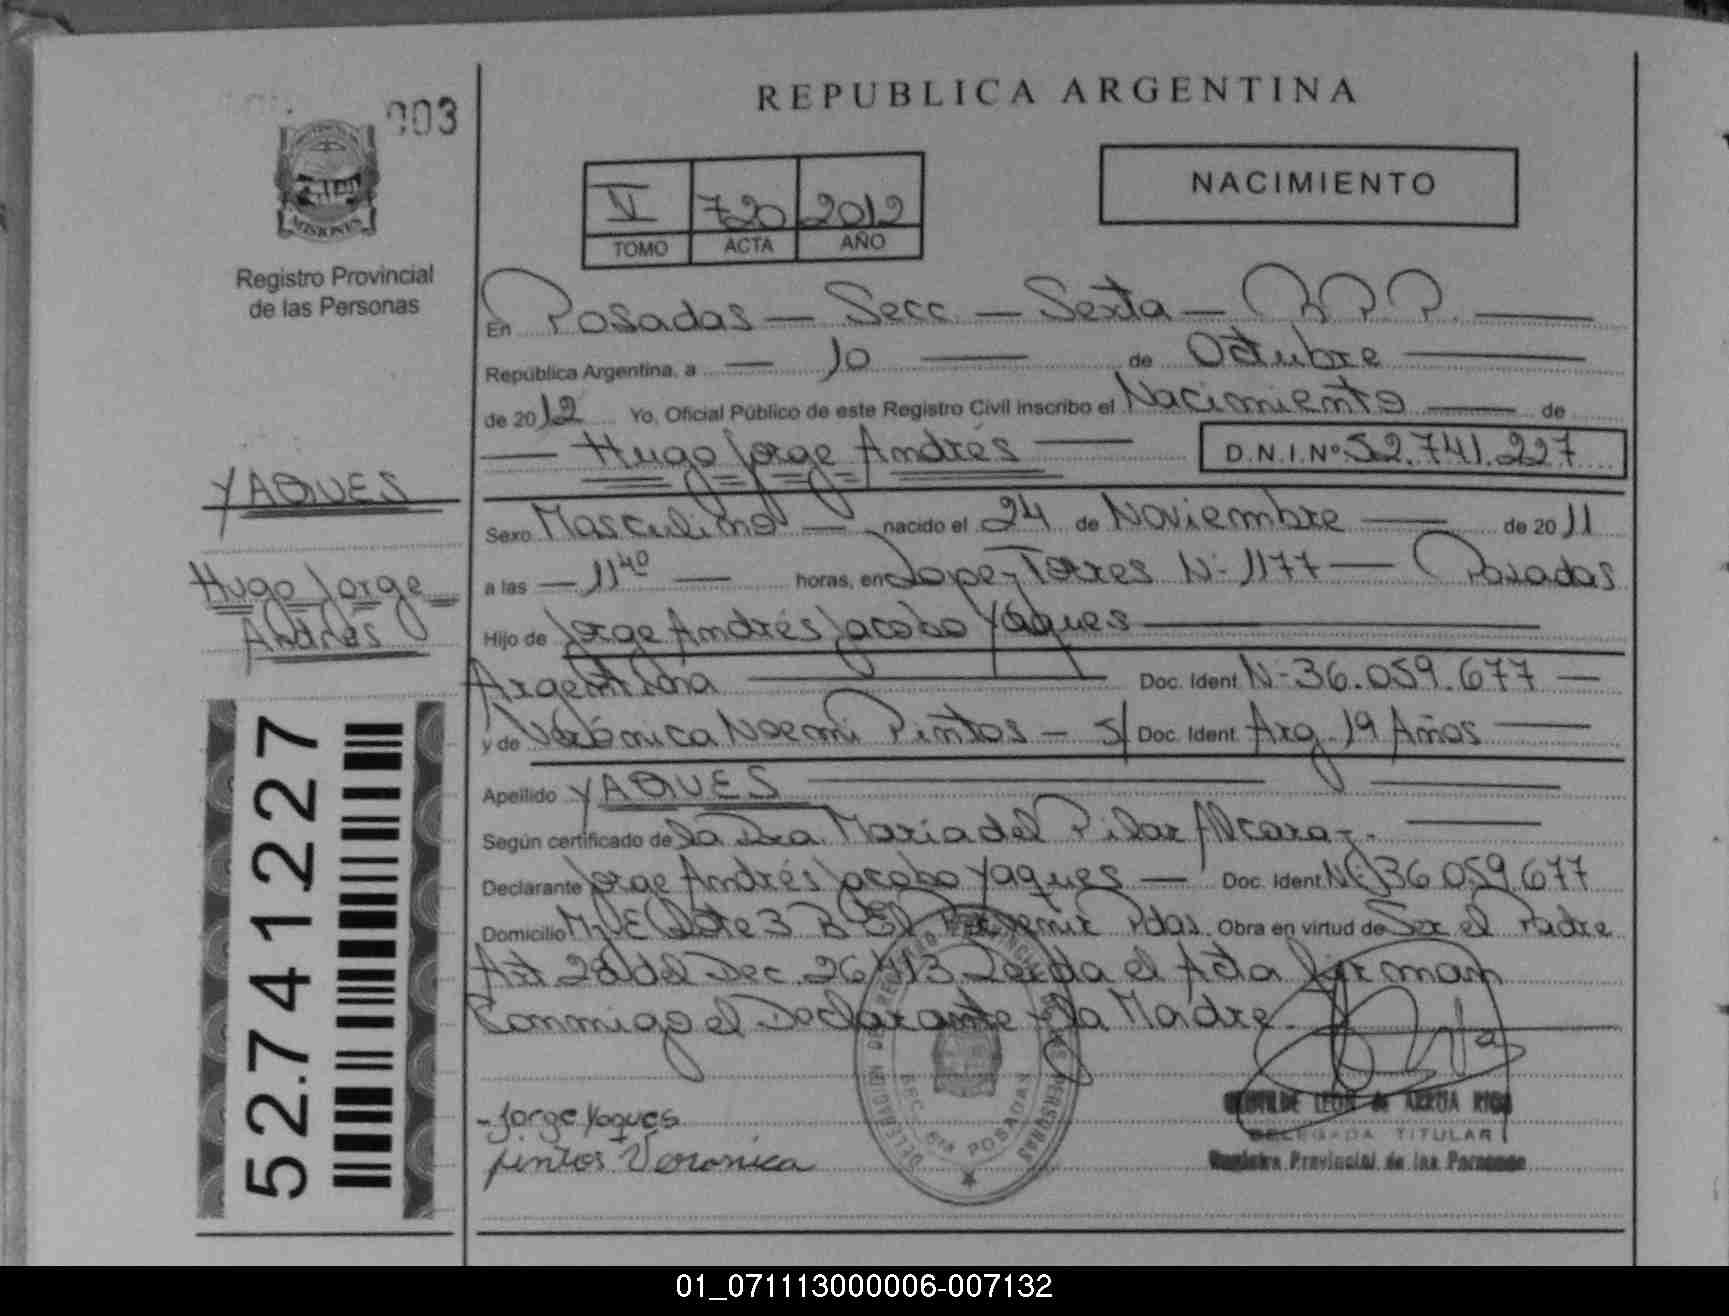 003
MISIONES
Registro Provincial
de las Personas
REPUBLICA ARGENTINA
V 720 2012
TOMO ACTA AÑO
NACIMIENTO
En Posadas — Secc. — Sexta —
República Argentina, a — 10 — de Octubre —
de 2012 Yo, Oficial Público de este Registro Civil inscribo el Nacimiento — de
— Hugo Jorge Andrés — D.N.I.Nº 52.741.227
YAQUES
Sexo Masculino — nacido el 24 de Noviembre — de 2011
Hugo Jorge
Andrés
a las — 11 40 — horas, en Lopez Torres N- 1177 — Posadas
Hijo de Jorge Andrés Jacobo Yaques —
Argentina — Doc. Ident N- 36.059.677 —
y de Verónica Noemi Pintos — S/ Doc. Ident. Arg. 19 Años —
Apellido YAQUES —
Según certificado de La Dra. María del Pilar Alcaraz. —
Declarante Jorge Andrés Jacobo Yaques — Doc. Ident. N- 36.059.677
Domicilio Mz E Lote 3 Bº El Porvenir Pdas. Obra en virtud de Ser el Padre
Art 28 del Dec. Leida el Acta firman
Conmigo el Declarante y la Madre.
52.741.227
DELEGACION DE REGISTRO PROVINCIAL DE LAS PERSONAS
SEC. 6ta POSADAS
- Jorge Yaques
pintos Veronica
CLOTILDE LEON de ARRUA
DELEGADA TITULAR
Registro Provincial de las Personas
01_071113000006-007132